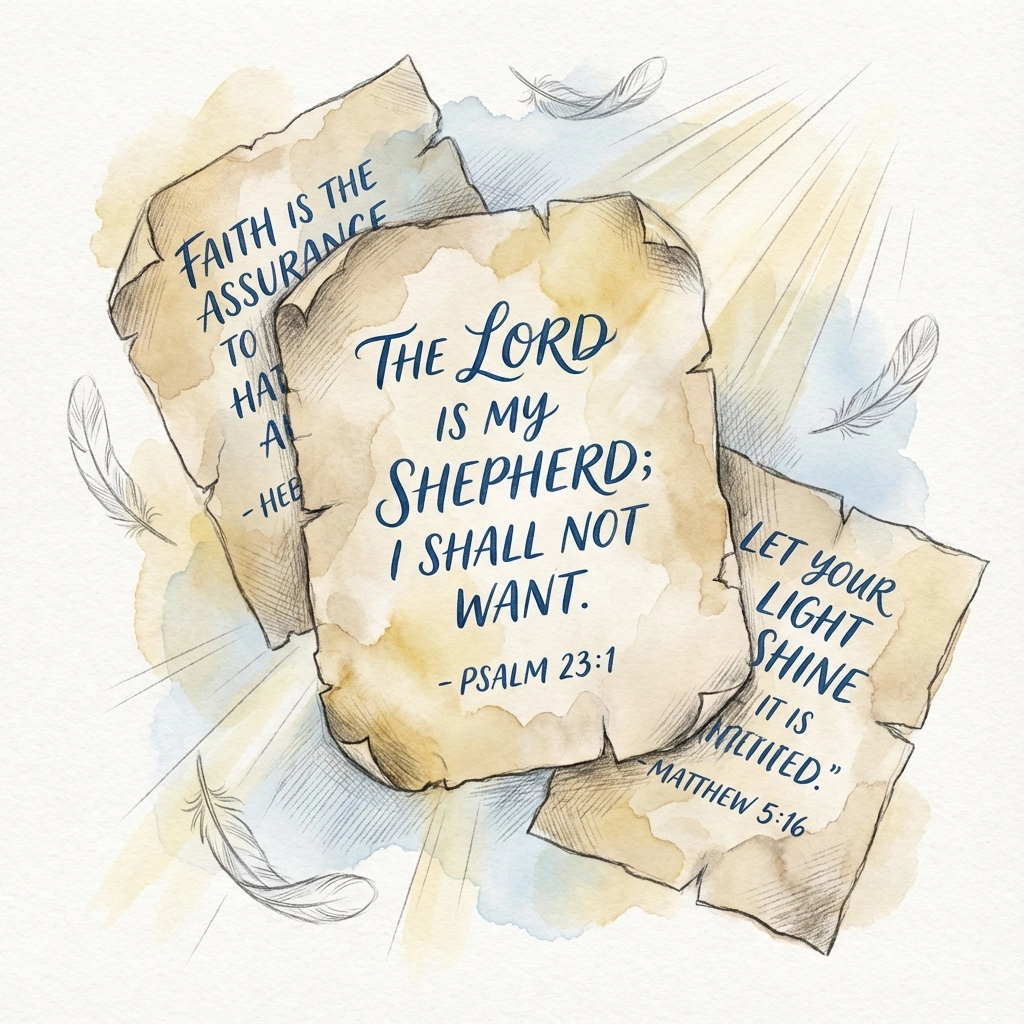 FAITH IS THE
ASSURANCE
TO
HAT
- HEB
THE LORD
IS MY
SHEPHERD;
I SHALL NOT
WANT.
- PSALM 23:1
LET YOUR
LIGHT
SHINE
IT IS
-MATTHEW 5:16